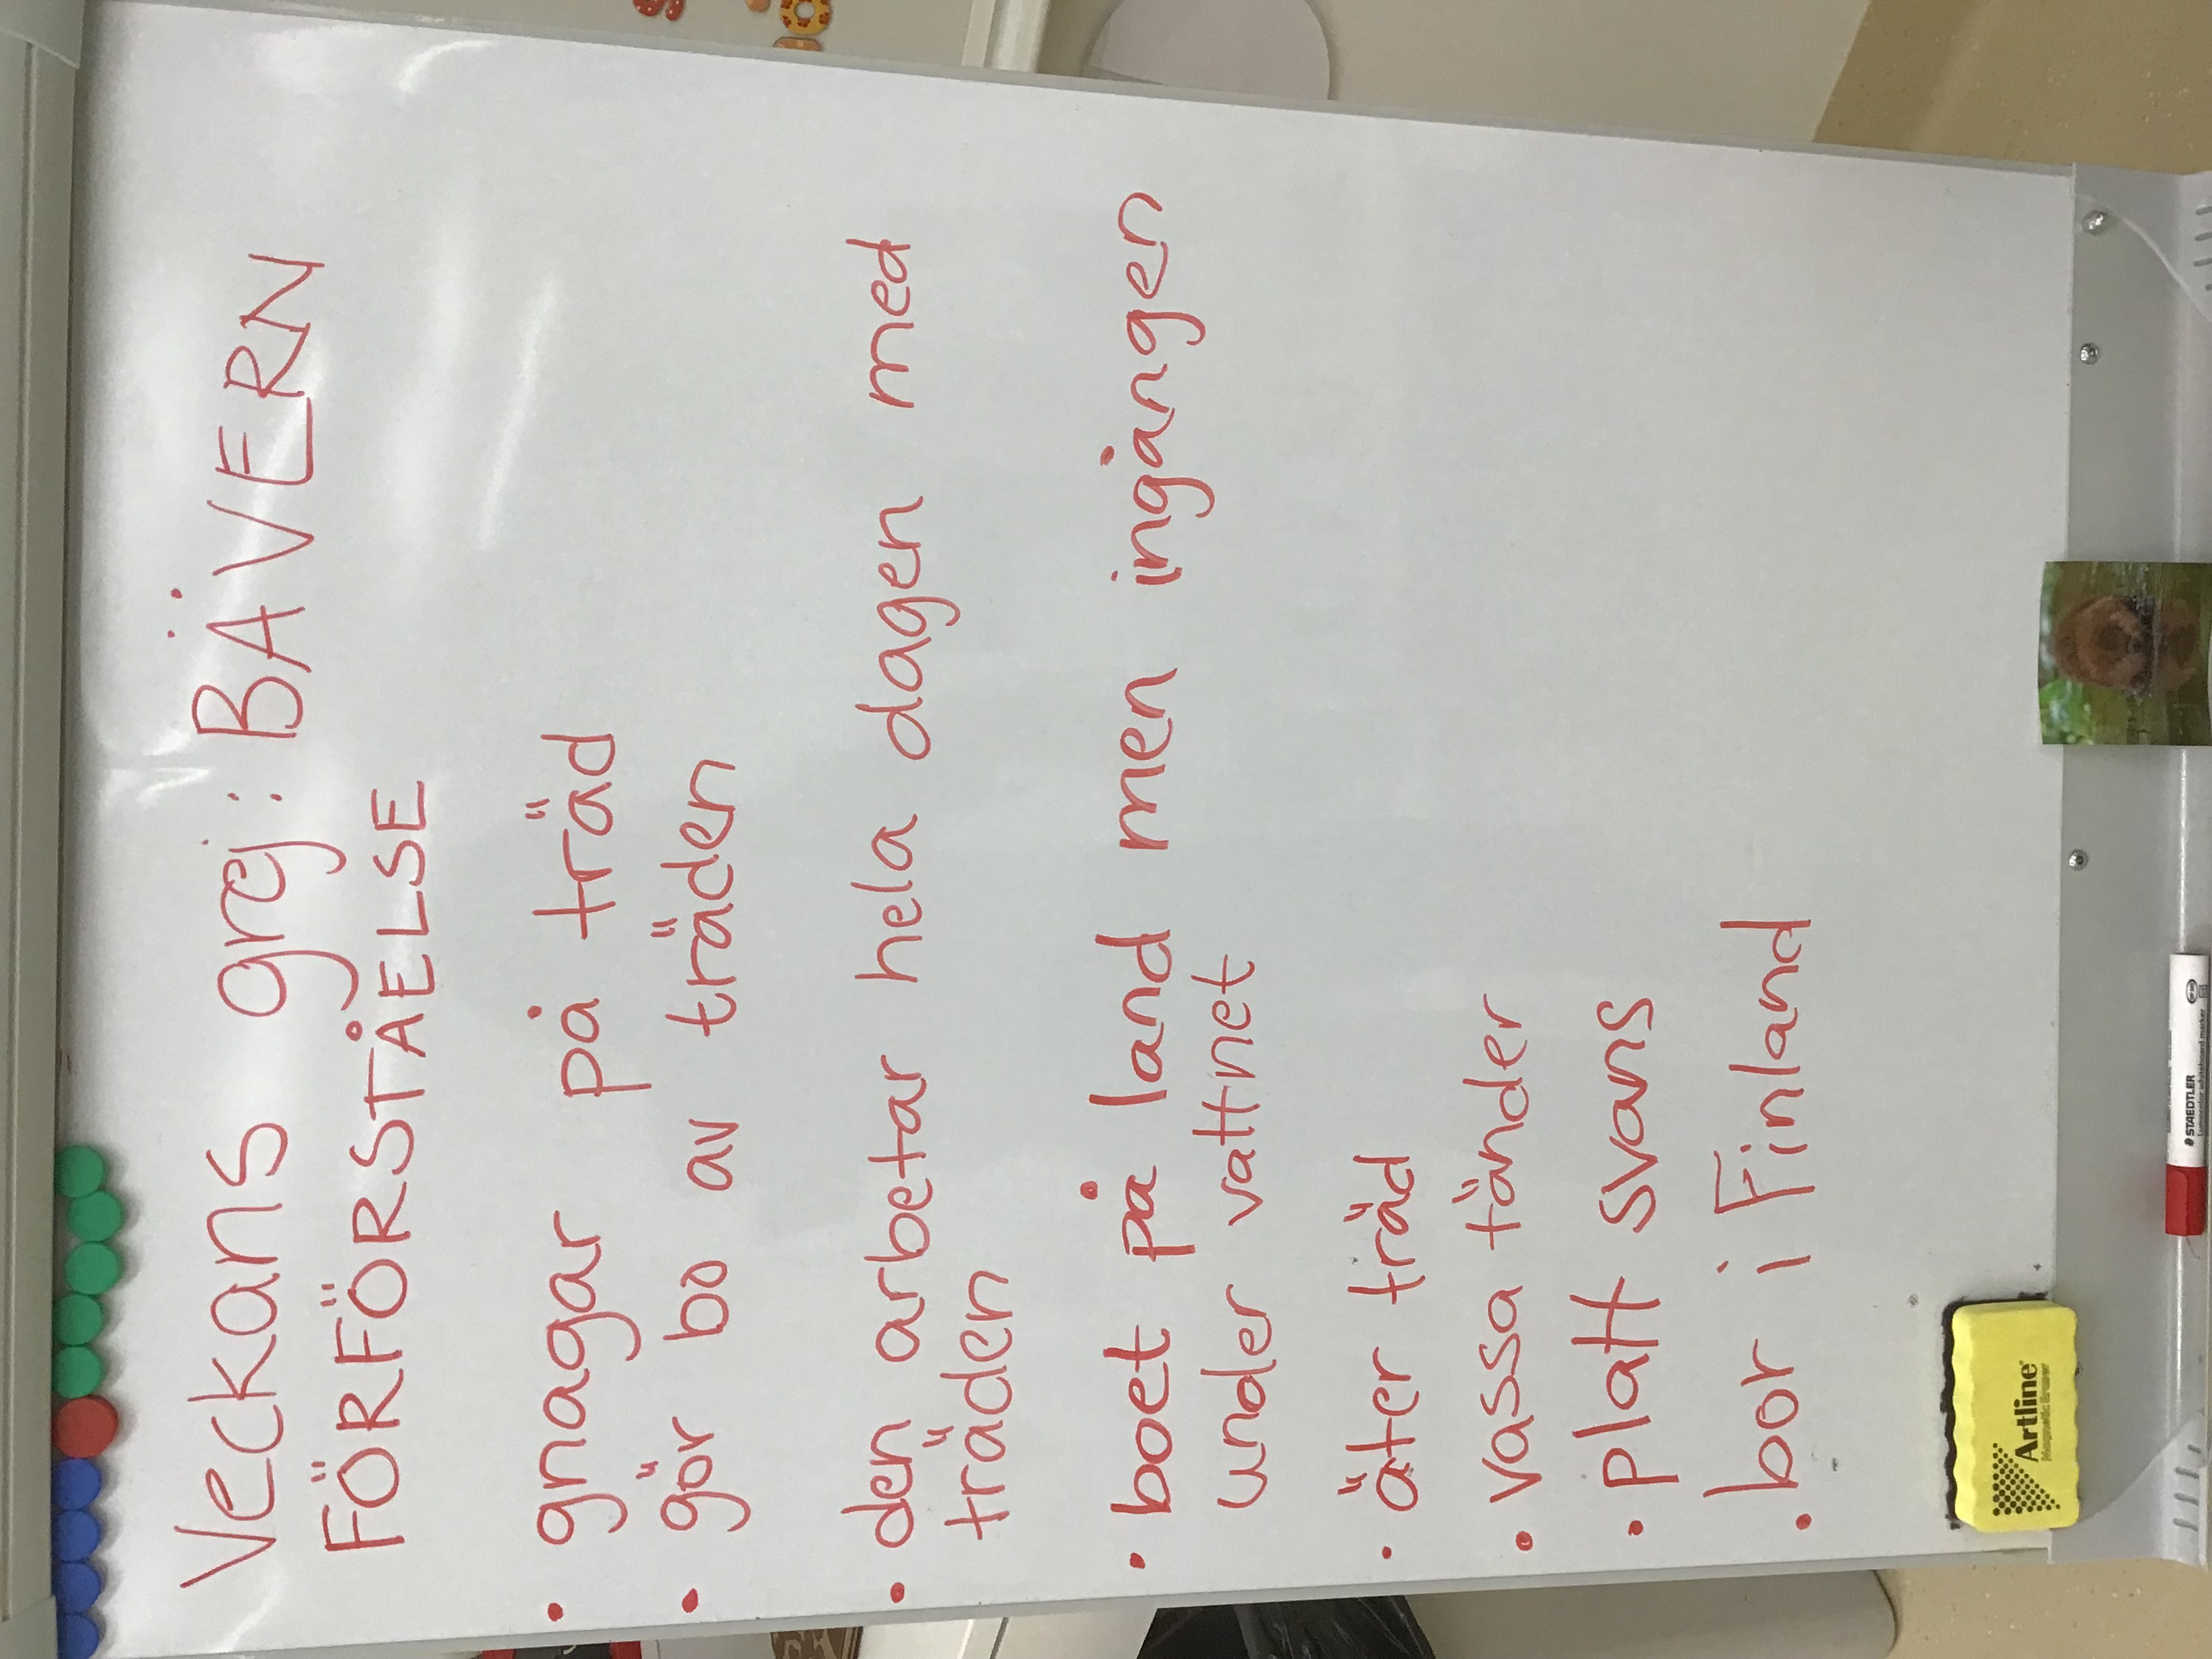 Veckans grej: BÄVERN
FÖRFÖRSTÅELSE
• gnagar på träd
• gör bo av träden
• den arbetar hela dagen med
träden
• boet på land men ingången
under vattnet
• äter träd
• vassa tänder
• platt svans
• bor i Finland
Artline
Magnetic Eraser
STAEDTLER